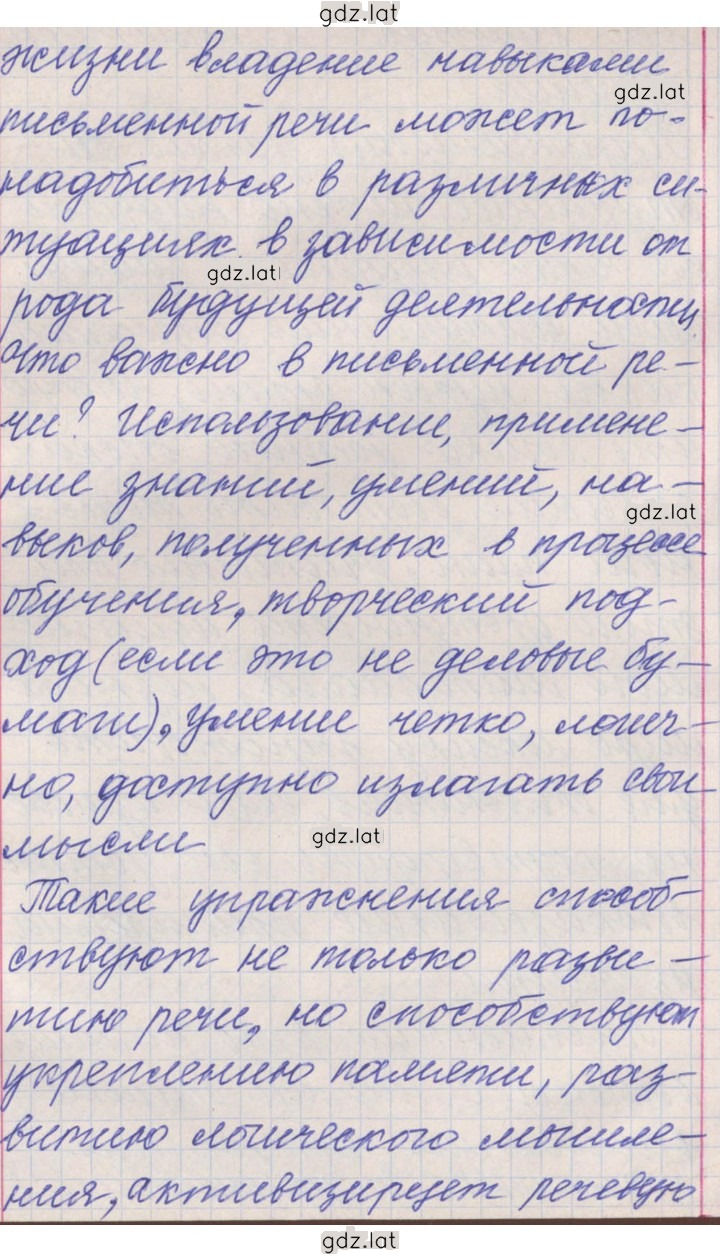 gdz.lat
жизни владение навыками
gdz.lat
письменной речи может по-
надобиться в различных си-
туациях в зависимости от
gdz.lat
рода будущей деятельности
Что важно в письменной ре-
чи? Использование, примене-
ние знаний, умений, на-
gdz.lat
выков, полученных в процессе
обучения, творческий под-
ход (если это не деловые бу-
маги), умение четко, логич-
но, доступно излагать свои
gdz.lat
мысли
Такие упражнения способ-
ствуют не только разви-
тию речи, но способствуют
укреплению памяти, раз-
витию логического мышле-
ния, активизирует речевую
gdz.lat